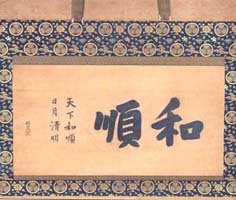 和順
天下和順
日月清明